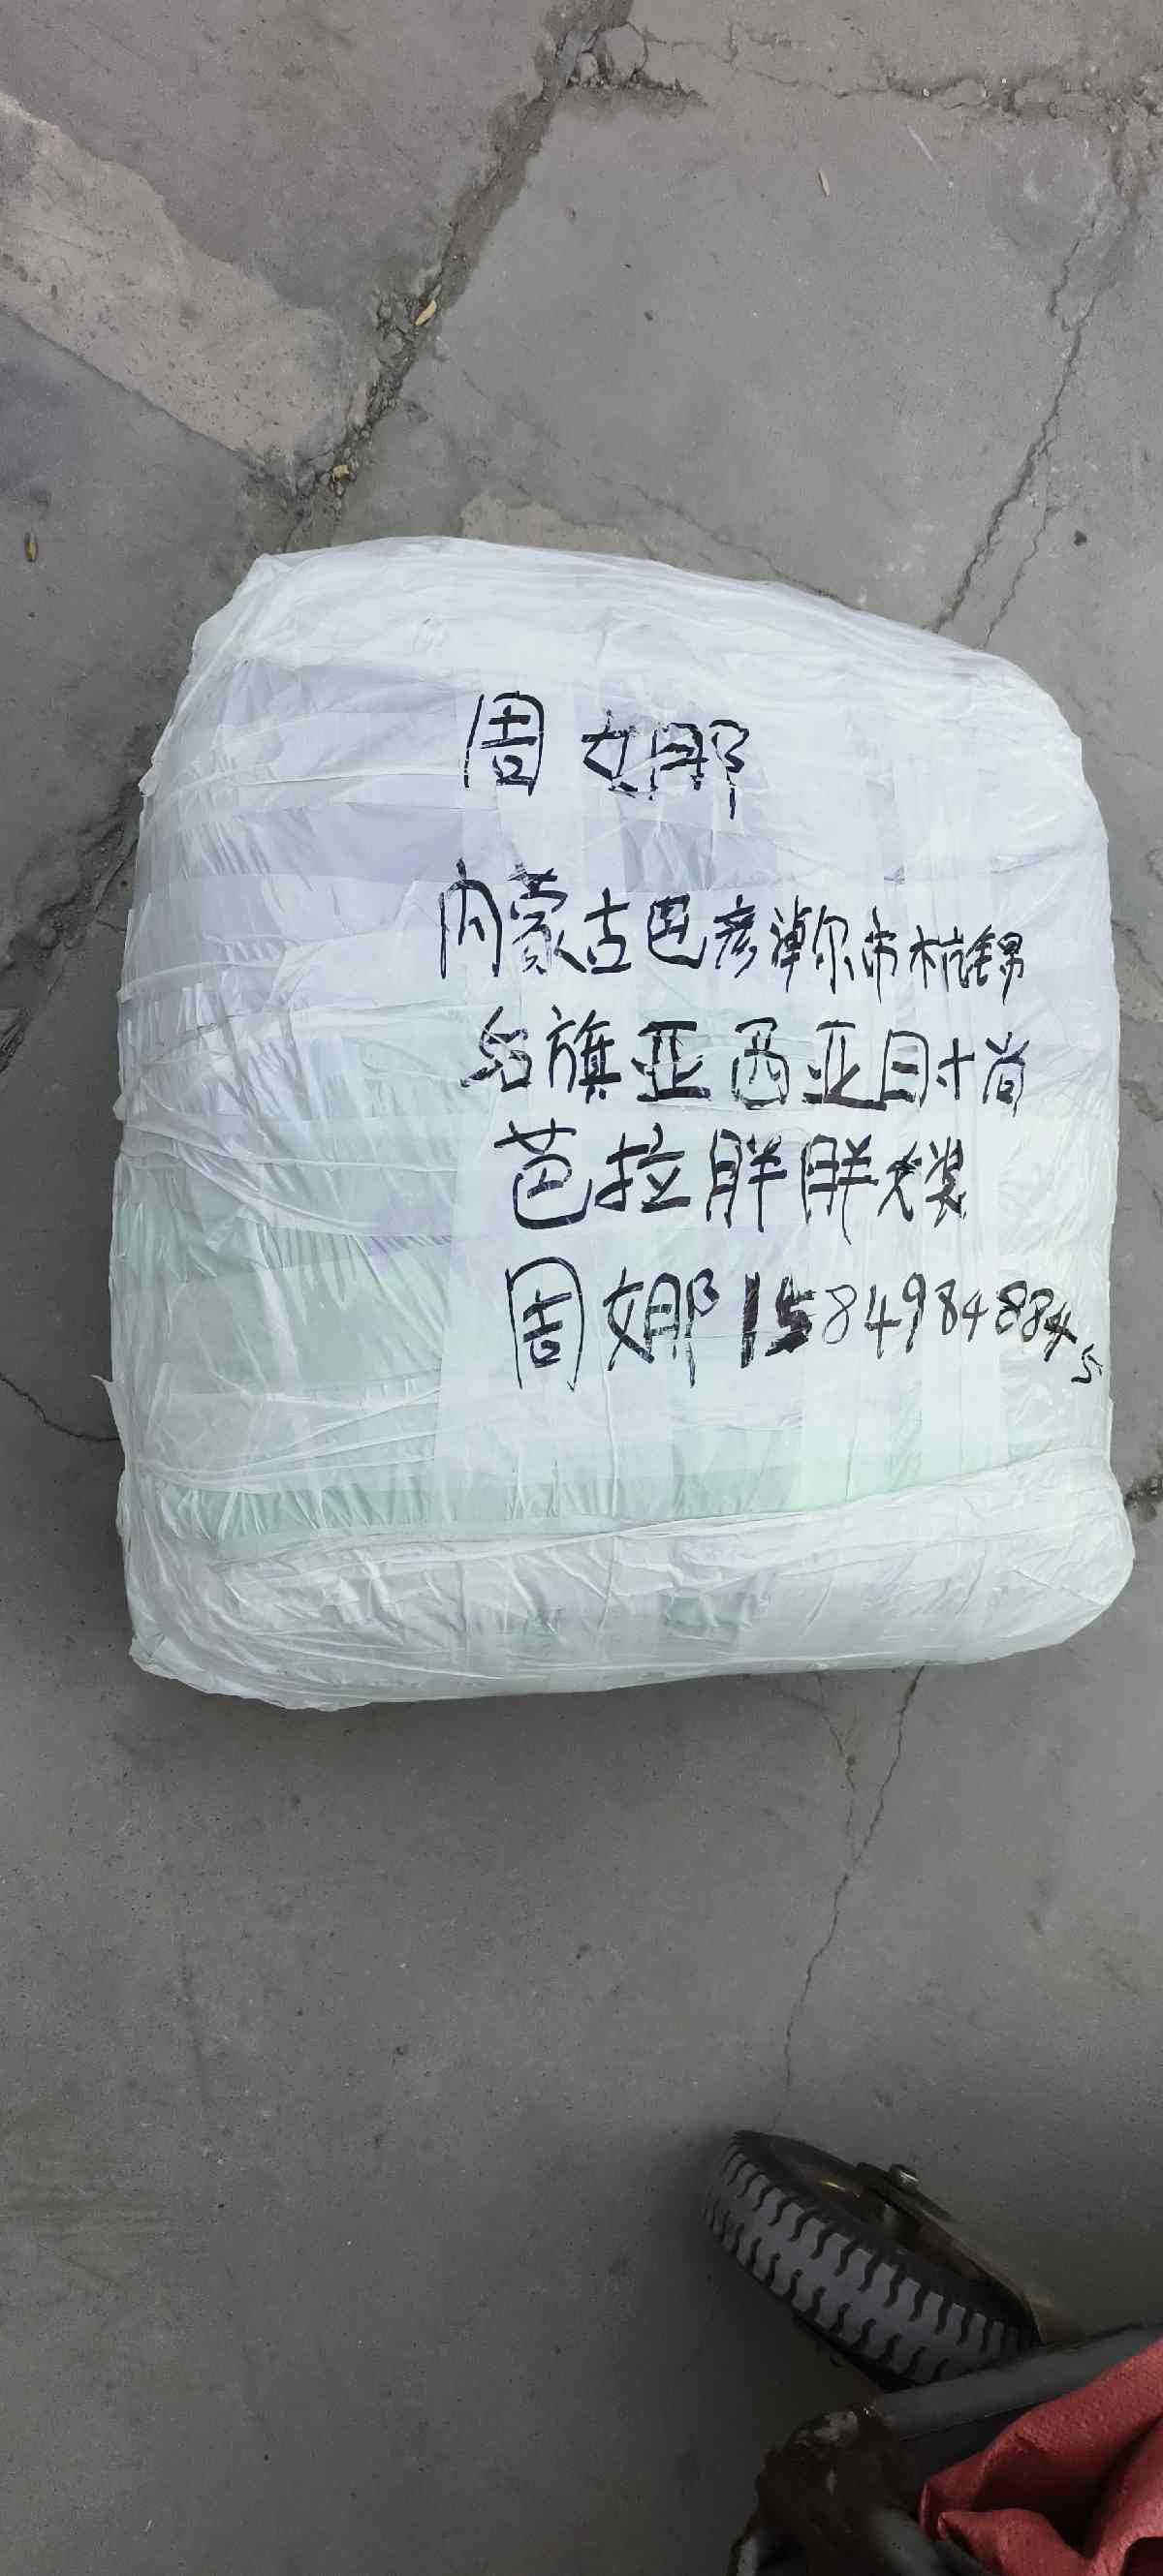 周娜
内蒙古巴彦淖尔市杭锦
后旗亚西亚时尚
芭拉胖胖女装
周娜 15849848845